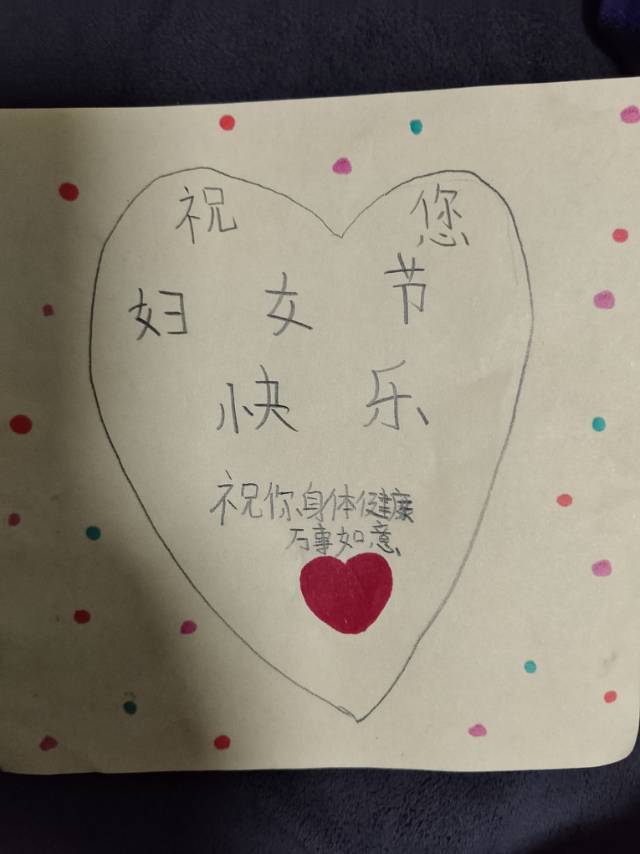 祝 您
妇 女 节
快 乐
祝你身体健康
万事如意